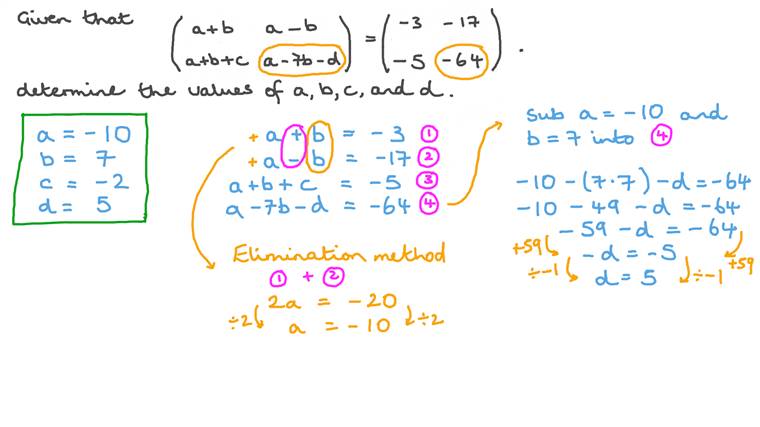 Given that
a+b a-b = -3 -17
a+b+c a-7b-d -5 -64 .
determine the values of a, b, c, and d.
a = -10
b = 7
c = -2
d = 5
+ a + b = -3 ①
+ a - b = -17 ②
a+b+c = -5 ③
a-7b-d = -64 ④
Elimination method
① + ②
2a = -20
÷2 a = -10 ÷2
Sub a = -10 and
b = 7 into ④
-10 - (7·7) - d = -64
-10 - 49 - d = -64
-59 - d = -64
+59 -d = -5 +59
÷-1 d = 5 ÷-1